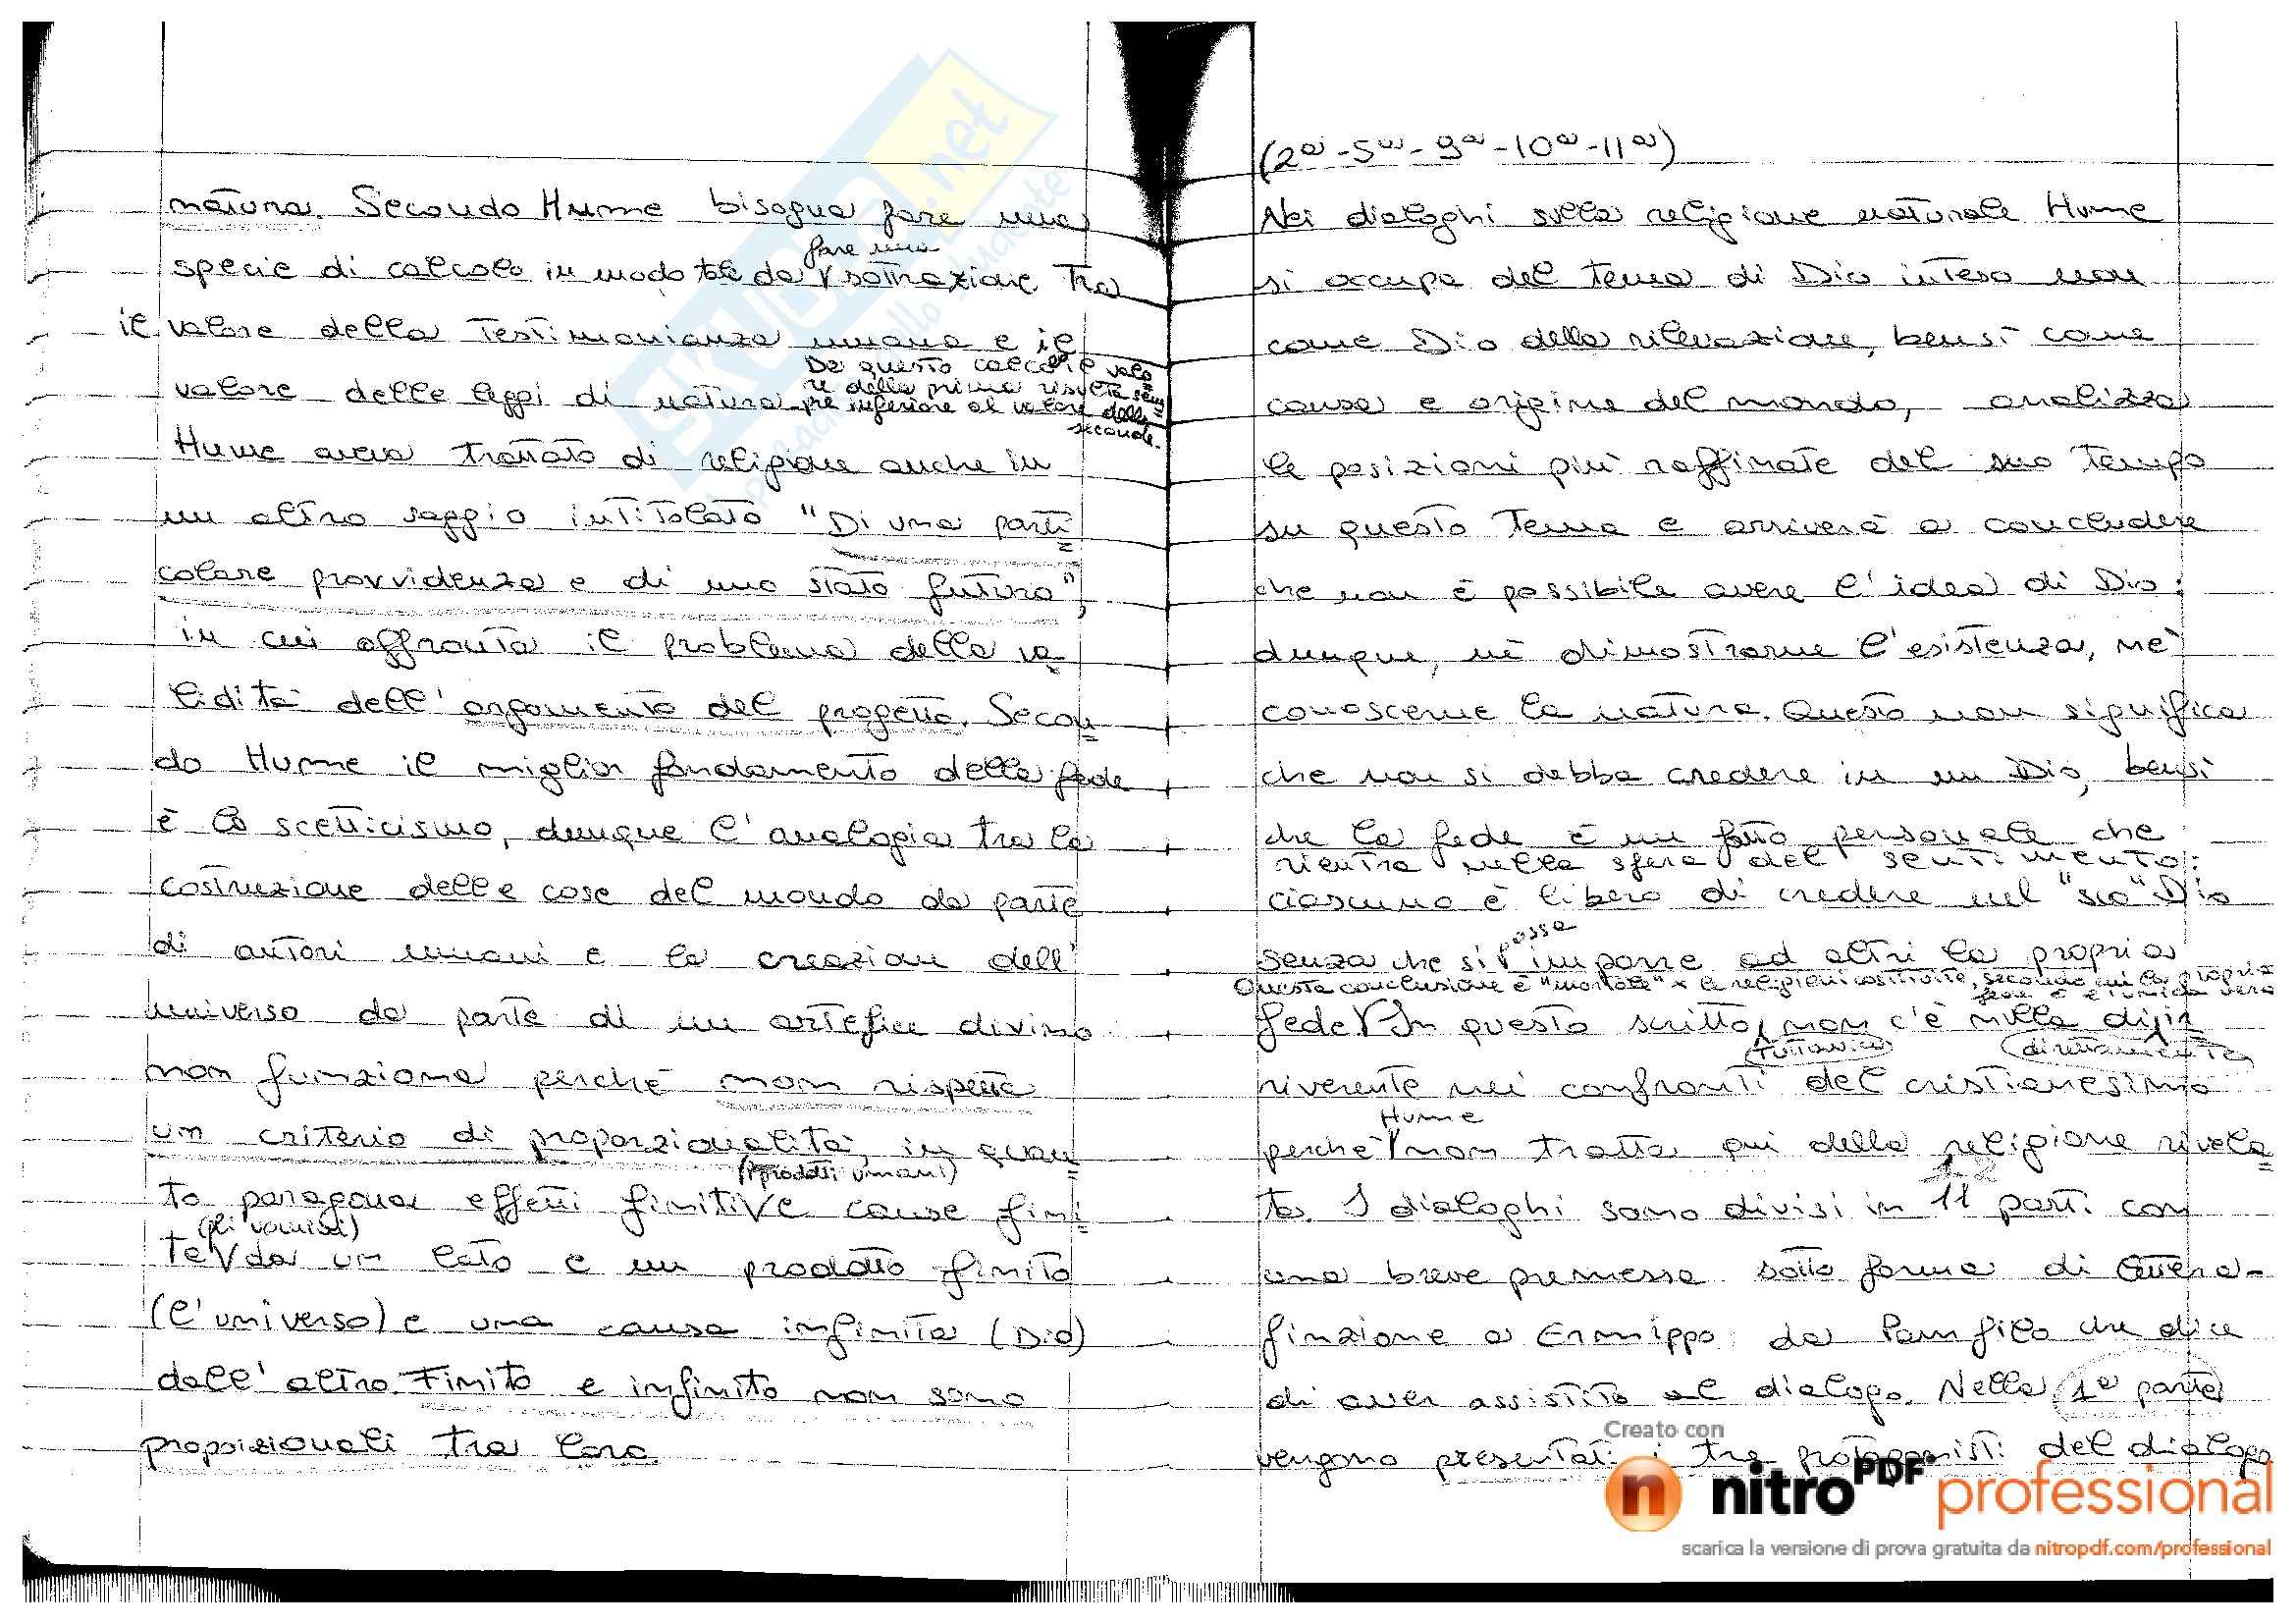 natura. Secondo Hume bisogna fare una
specie di calcolo in modo tale da fare una sottrazione tra
il valore della testimonianza umana e il
valore delle leggi di natura. Da questo calcolo il valo=
re della prima risulta sem=
pre inferiore al valore della
seconda.
Hume aveva trattato di religione anche in
un altro saggio intitolato "Di una parti=
colare provvidenza e di uno stato futuro",
in cui affronta il problema della va=
lidità dell'argomento del progetto. Secon=
do Hume il miglior fondamento della fede
è lo scetticismo, dunque l'analogia tra la
costruzione delle cose del mondo da parte
di autori umani e la creazione dell'
universo da parte di un artefice divino
non funziona perché non rispetta
un criterio di proporzionalità, in quan=
to paragona effetti finiti (prodotti umani) e cause fini=
te (gli uomini) da un lato e un prodotto finito
(l'universo) e una causa infinita (Dio)
dall'altro. Finito e infinito non sono
proporzionali tra loro.
(2a - 5a - 9a - 10a - 11a)
Nei dialoghi sulla religione naturale Hume
si occupa del tema di Dio inteso non
come Dio della rilevazione, bensì come
causa e origine del mondo, analizza
le posizioni più raffinate del suo tempo
su questo tema e arriverà a concludere
che non è possibile avere l'idea di Dio:
dunque, nè dimostrarne l'esistenza, nè
conoscerne la natura. Questo non significa
che non si debba credere in un Dio, bensì
che la fede è un fatto personale che
rientra nella sfera del sentimento:
ciascuno è libero di credere nel "suo" Dio
senza che si possa imporre ad altri la propria
fede. Questa conclusione è "mortale" x le religioni costituite, secondo cui la propria
fede è l'unica vera
In questo scritto, tuttavia, non c'è nulla di direttamente ir=
riverente nei confronti del cristianesimo
perchè Hume non tratta qui della religione rivela=
ta. I dialoghi sono divisi in 12 parti con
una breve premessa sotto forma di lettera-
finzione a Ermippo da Panfilo che dice
di aver assistito al dialogo. Nella 1a parte
vengono presentati i tre protagonisti del dialogo
SKUOLA.net
Creato con
nitroPDF professional
scarica la versione di prova gratuita da nitropdf.com/professional